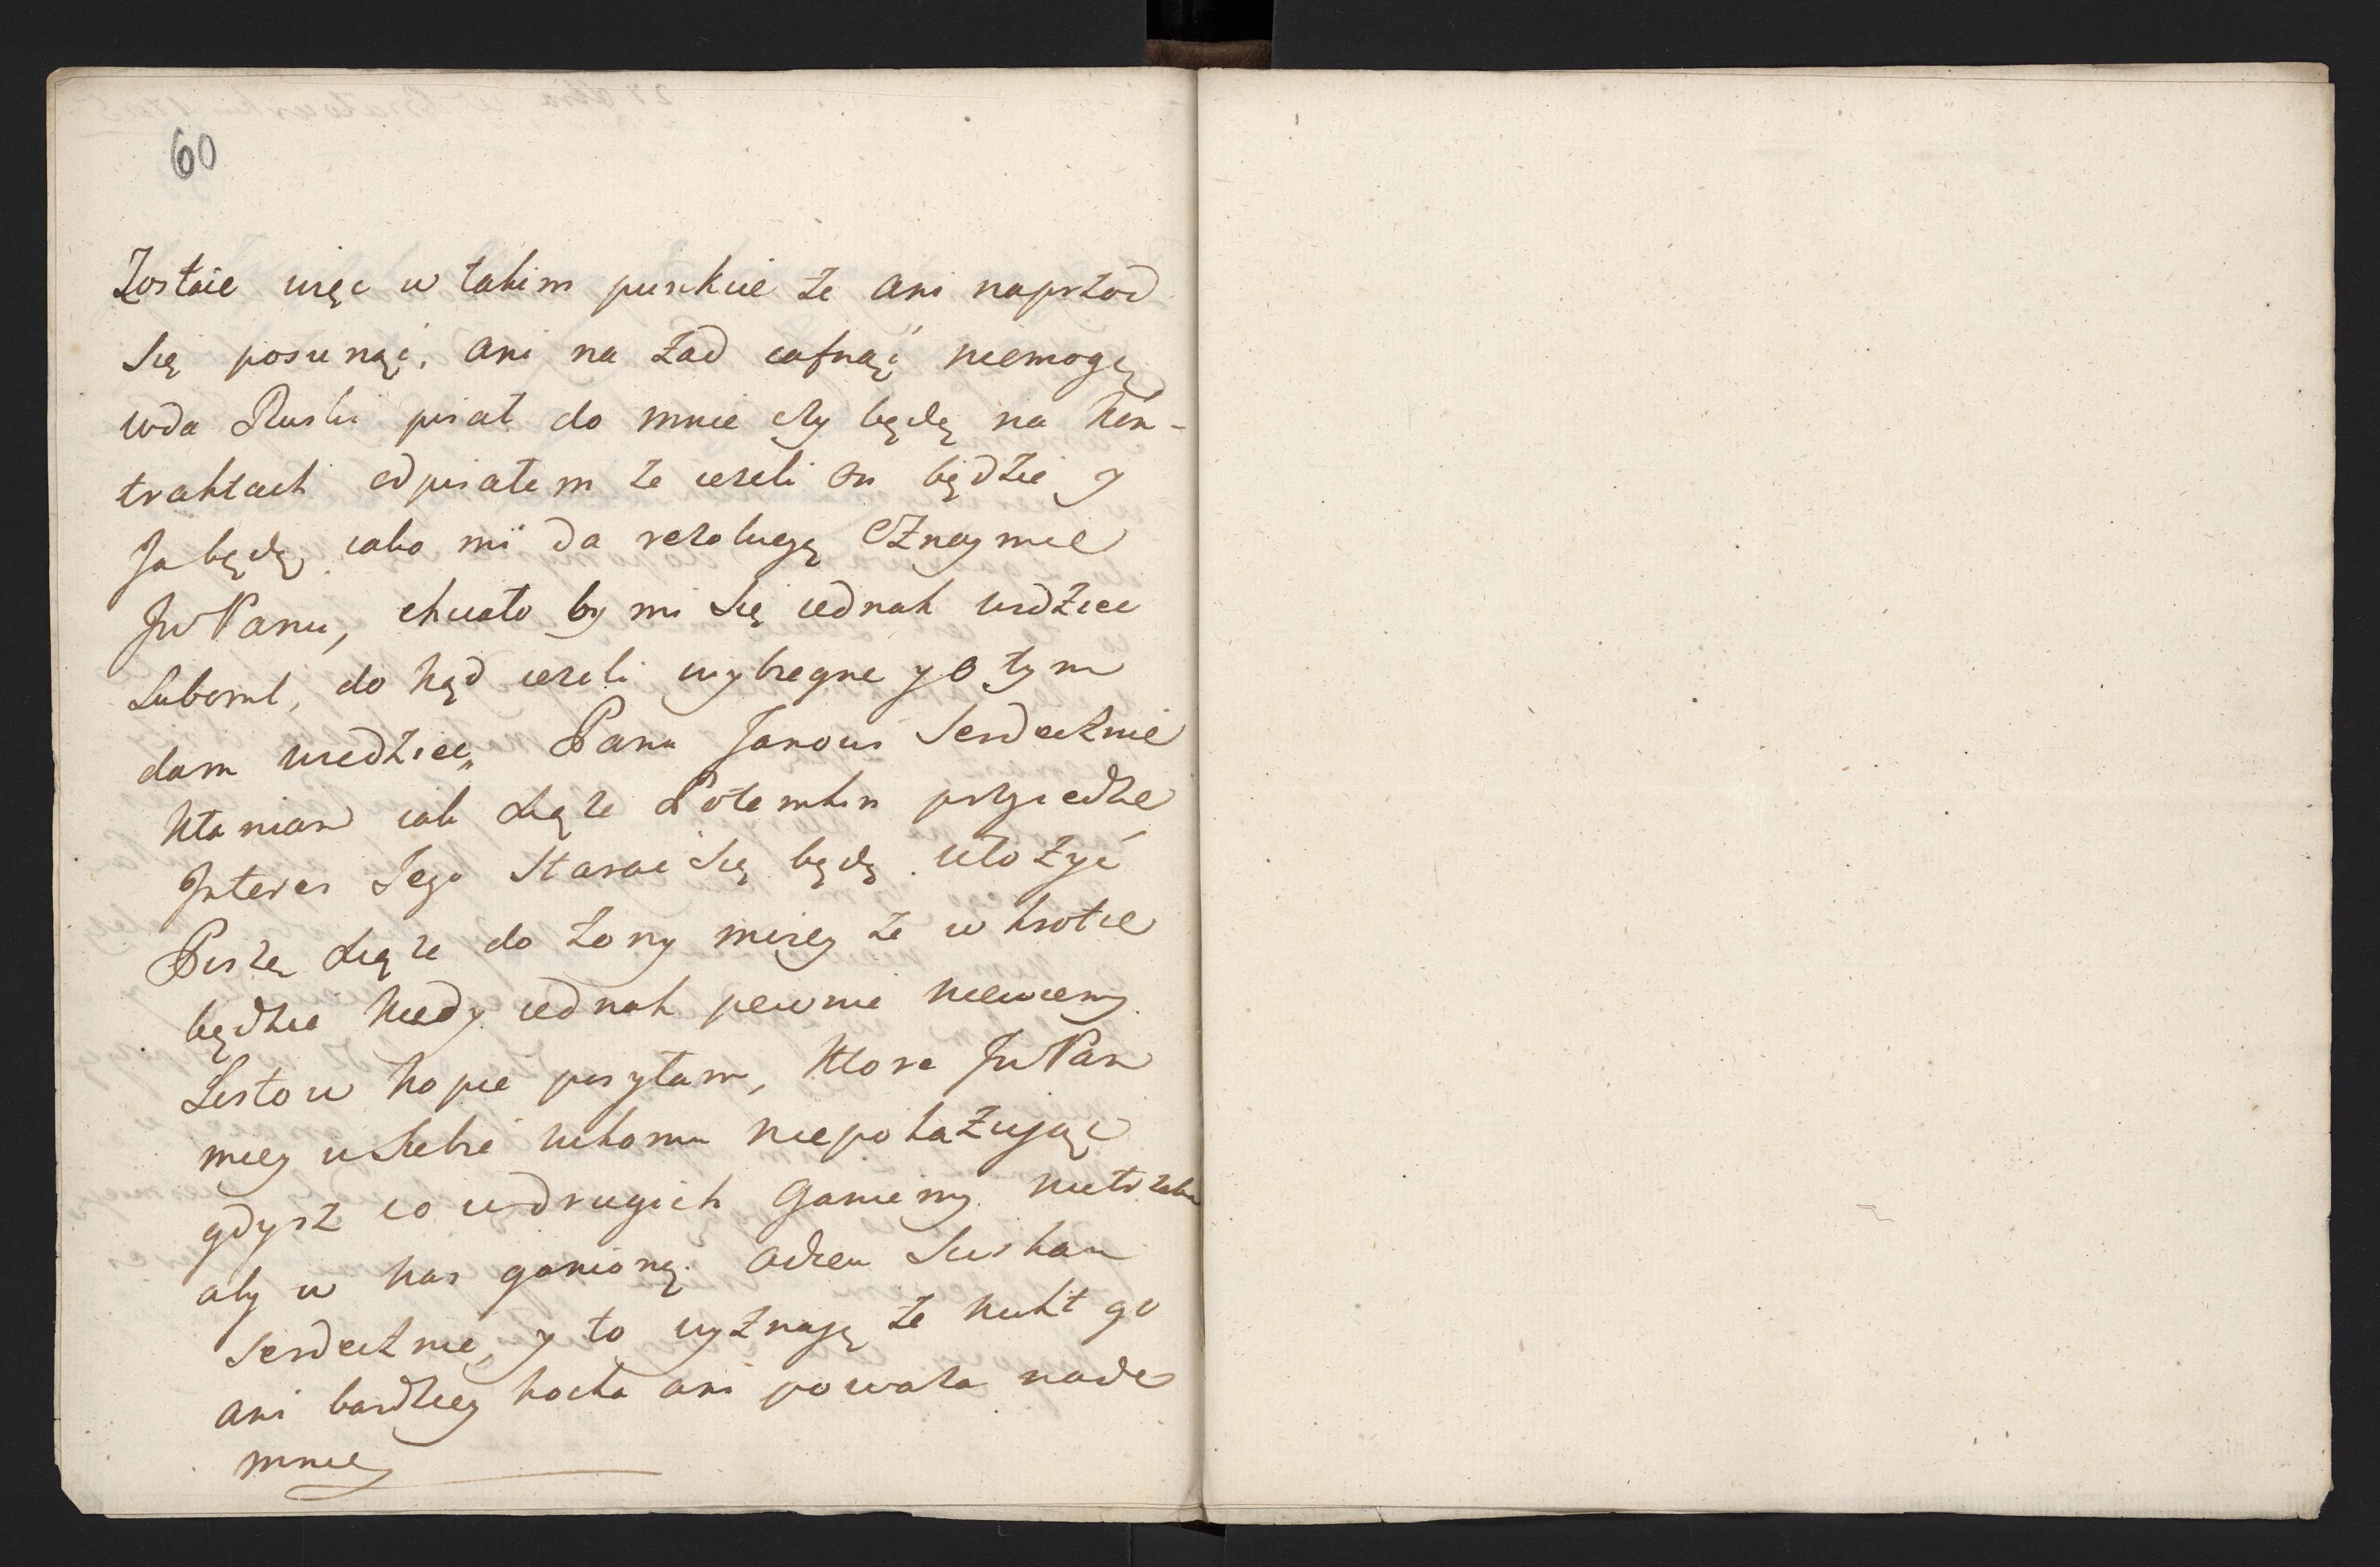 60
Zostaie więc w takim punkcie że ani naprżod
się posunąć, ani na żad cofnąć niemogę
wda Ruski pisał do mnie czy będę na kon-
traktach odpisałem że ieżeli on będzie y
Ja będę iako mi da rezolucyę oznaymie
JwPanu, chciało by mi się iednak widziec
Luboml, do kąd ieżeli wybiegne y o tym
dam wiedziec, Panu Janowi Serdecznie
kłaniam iak Xiąże Potemkin przyiedzie
Jnteres Jego Starac się będę ułożyć
Pisze Xiąże do żony moiey że w krotce
będzie kiedy iednak pewnie niewiemy
Listow kopie posyłam, ktore JwPan
miey u siebie nikomu niepokazując
gdysz co u drugich Ganiemy nietrzeba
aby w nas ganiono. adieu Sciskam
serdecznie, y to wyznaję że nikt go
ani bardziey kocha ani poważa nade
mnie